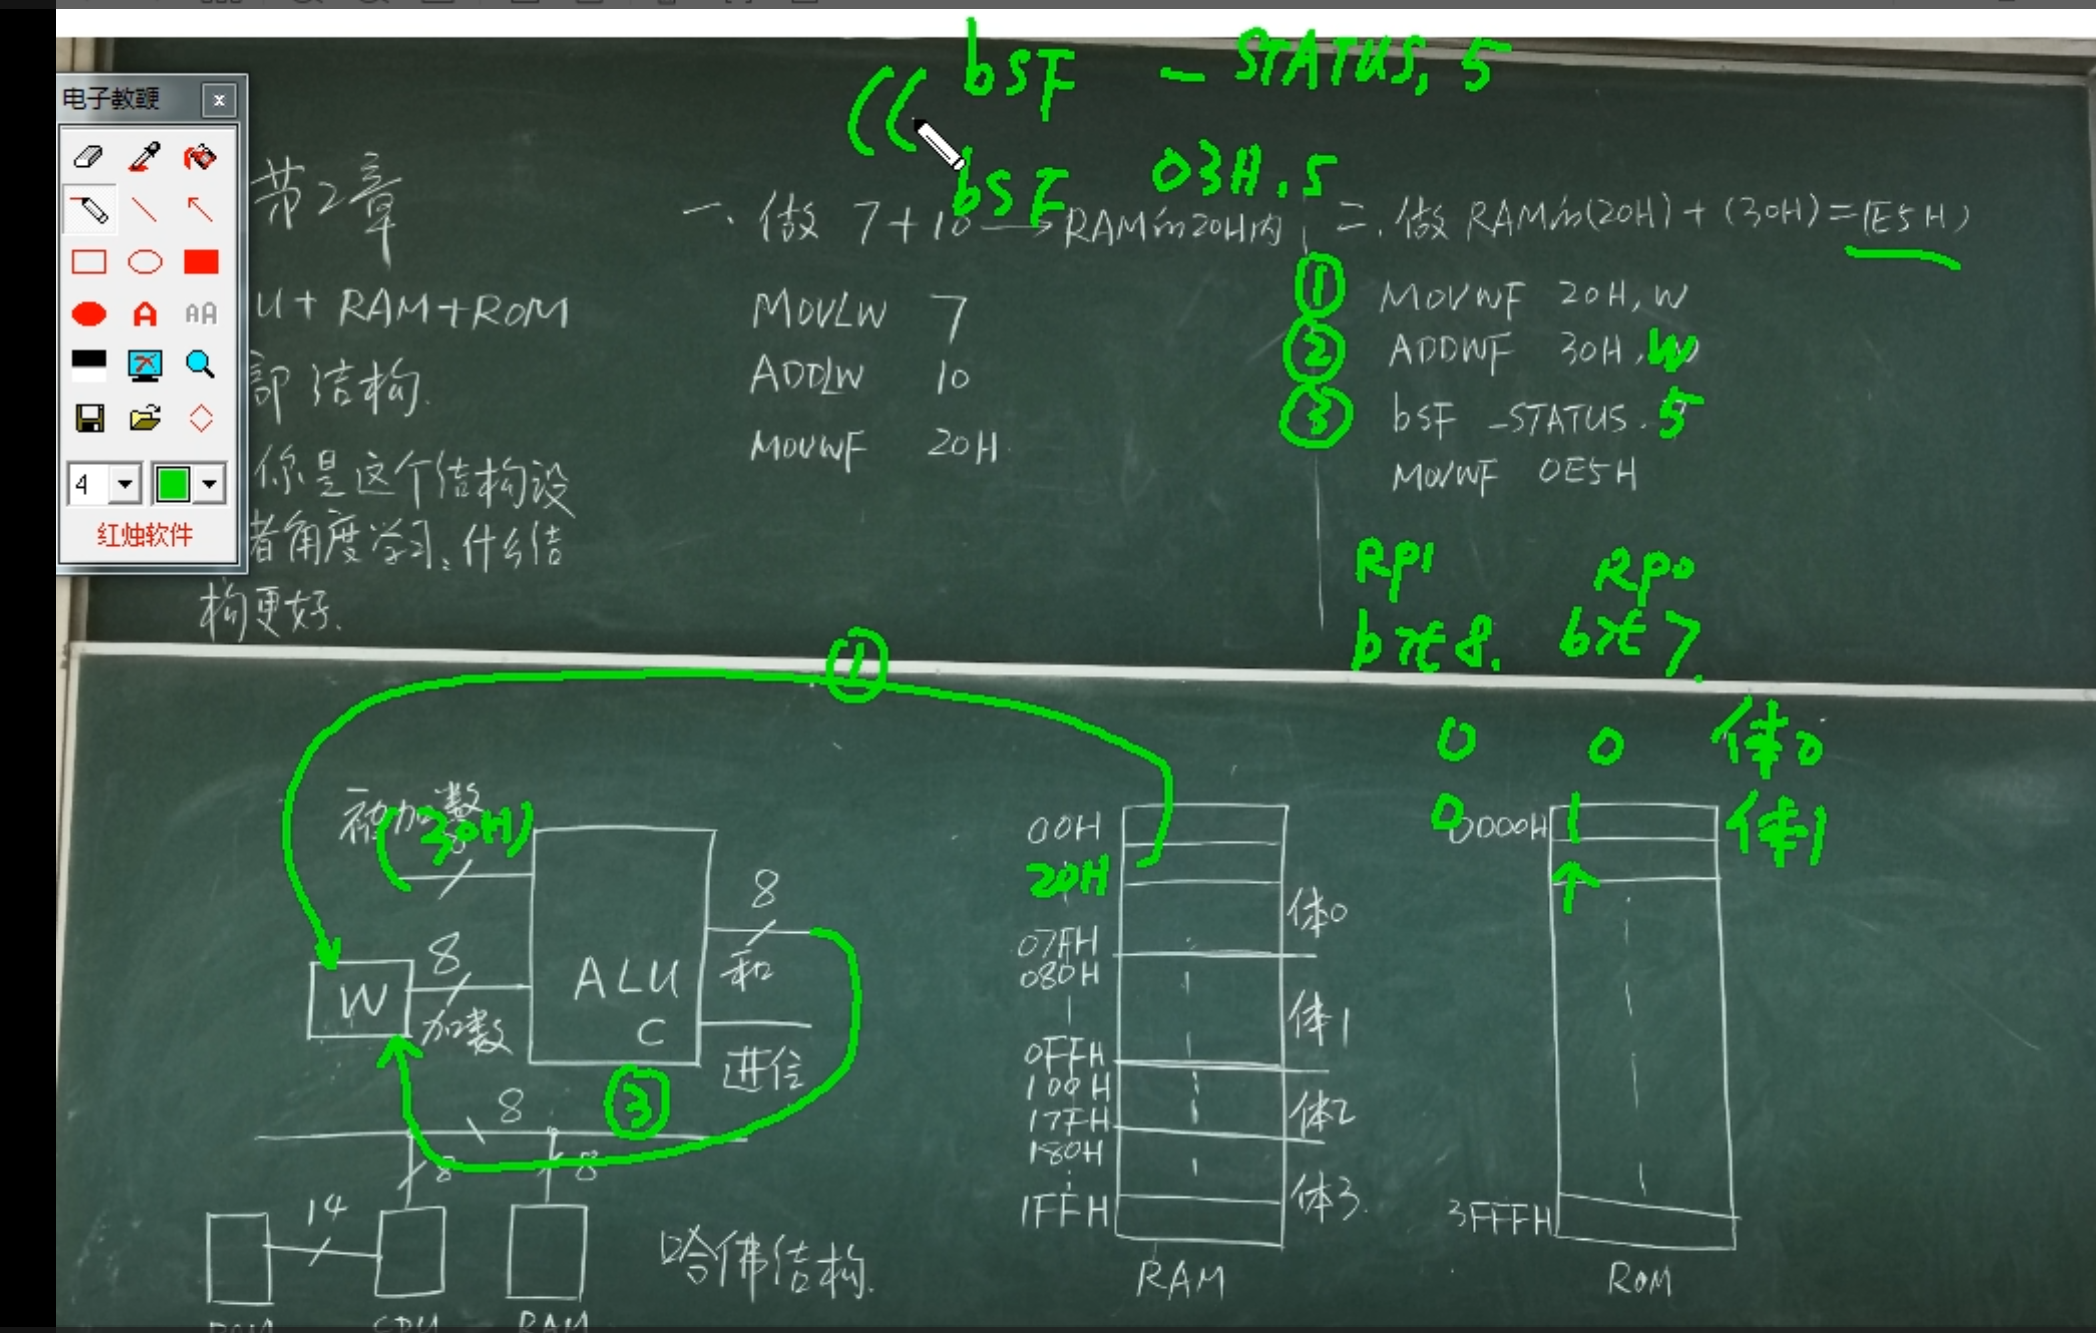 bSF _STATUS, 5
bSF 03H, 5
电子教鞭
4
红烛软件
第2章
U + RAM + ROM
部结构.
你是这个结构设
者角度学习、什么结
构更好.
一. 做 7+10 → RAM的20H内
MOVLW 7
ADDLW 10
MOVWF 20H
二. 做 RAM的(20H) + (30H) = (E5H)
① MOVWF 20H, W
② ADDWF 30H, W
③ bSF _STATUS. 5
MOVWF 0E5H
Rp1 Rp0
bit 8. bit 7.
0 0 体0
0 1 体1
①
被加数
(30H)
8
W
8
加数
ALU
C
8
和
进位
③
8
8
8
14
CPU
RAM
哈佛结构.
00H
20H
07FH
080H
0FFH
100H
17FH
180H
1FFH
体0
体1
体2
体3.
RAM
0000H
3FFFH
ROM